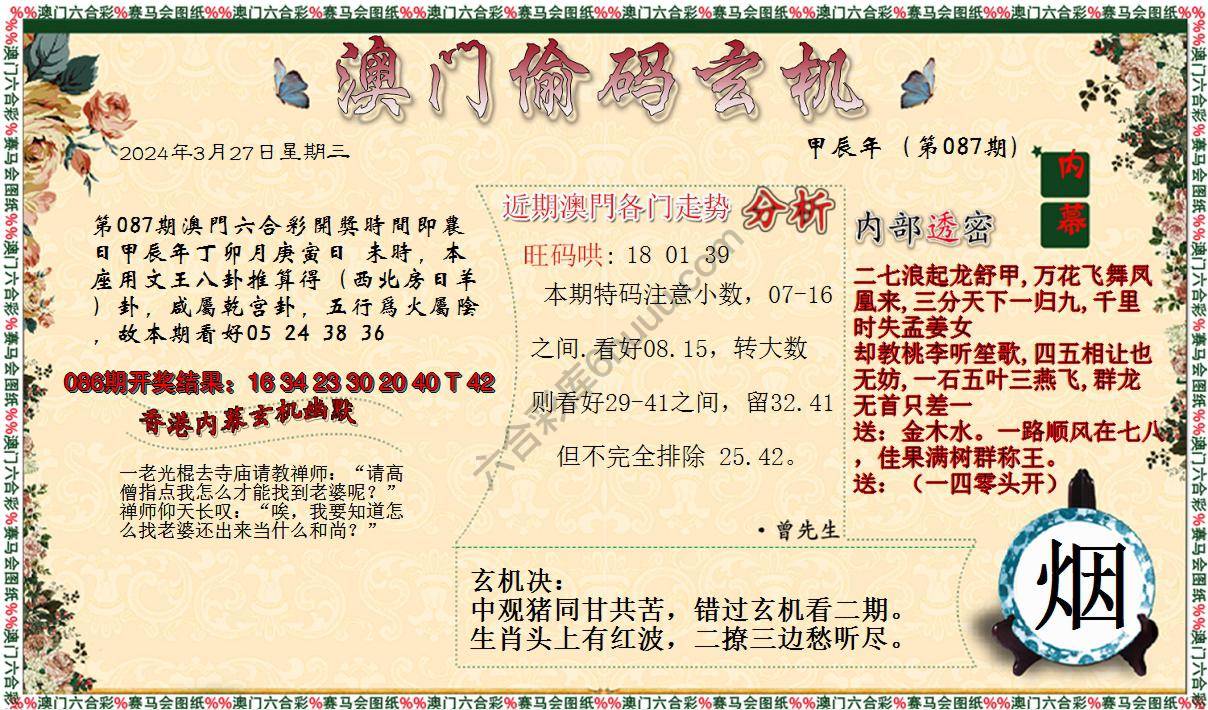 %%澳门六合彩%赛马会图纸%%澳门六合彩%赛马会图纸%%澳门六合彩%赛马会图纸%%澳门六合彩%赛马会图纸%%澳门六合彩%赛马会图纸%%澳门六合彩%赛马会图纸%%
澳门偷码玄机
2024年3月27日星期三
甲辰年（第087期）
内幕
第087期澳門六合彩開獎時間即農
日甲辰年丁卯月庚寅日 未時，本
座用文王八卦推算得（西北房日羊
）卦，咸屬乾宫卦，五行爲火屬陰
，故本期看好05 24 38 36
086期开奖结果：16 34 23 30 20 40 T 42
香港内幕玄机幽默
一老光棍去寺庙请教禅师：“请高
僧指点我怎么才能找到老婆呢？”
禅师仰天长叹：“唉，我要知道怎
么找老婆还出来当什么和尚？”
近期澳門各门走势 分析
旺码哄: 18 01 39
本期特码注意小数，07-16
之间.看好08.15，转大数
则看好29-41之间，留32.41
但不完全排除 25.42。
·曾先生
内部透密
二七浪起龙舒甲,万花飞舞凤
凰来,三分天下一归九,千里
时失孟姜女
却教桃李听笙歌,四五相让也
无妨,一石五叶三燕飞,群龙
无首只差一
送：金木水。一路顺风在七八
，佳果满树群称王。
送：（一四零头开）
玄机决：
中观猪同甘共苦，错过玄机看二期。
生肖头上有红波，二撩三边愁听尽。
烟
六合彩库6huuu.com
%%澳门六合彩%赛马会图纸%%澳门六合彩%赛马会图纸%%澳门六合彩%赛马会图纸%%澳门六合彩%赛马会图纸%%澳门六合彩%赛马会图纸%%澳门六合彩%赛马会图纸%%